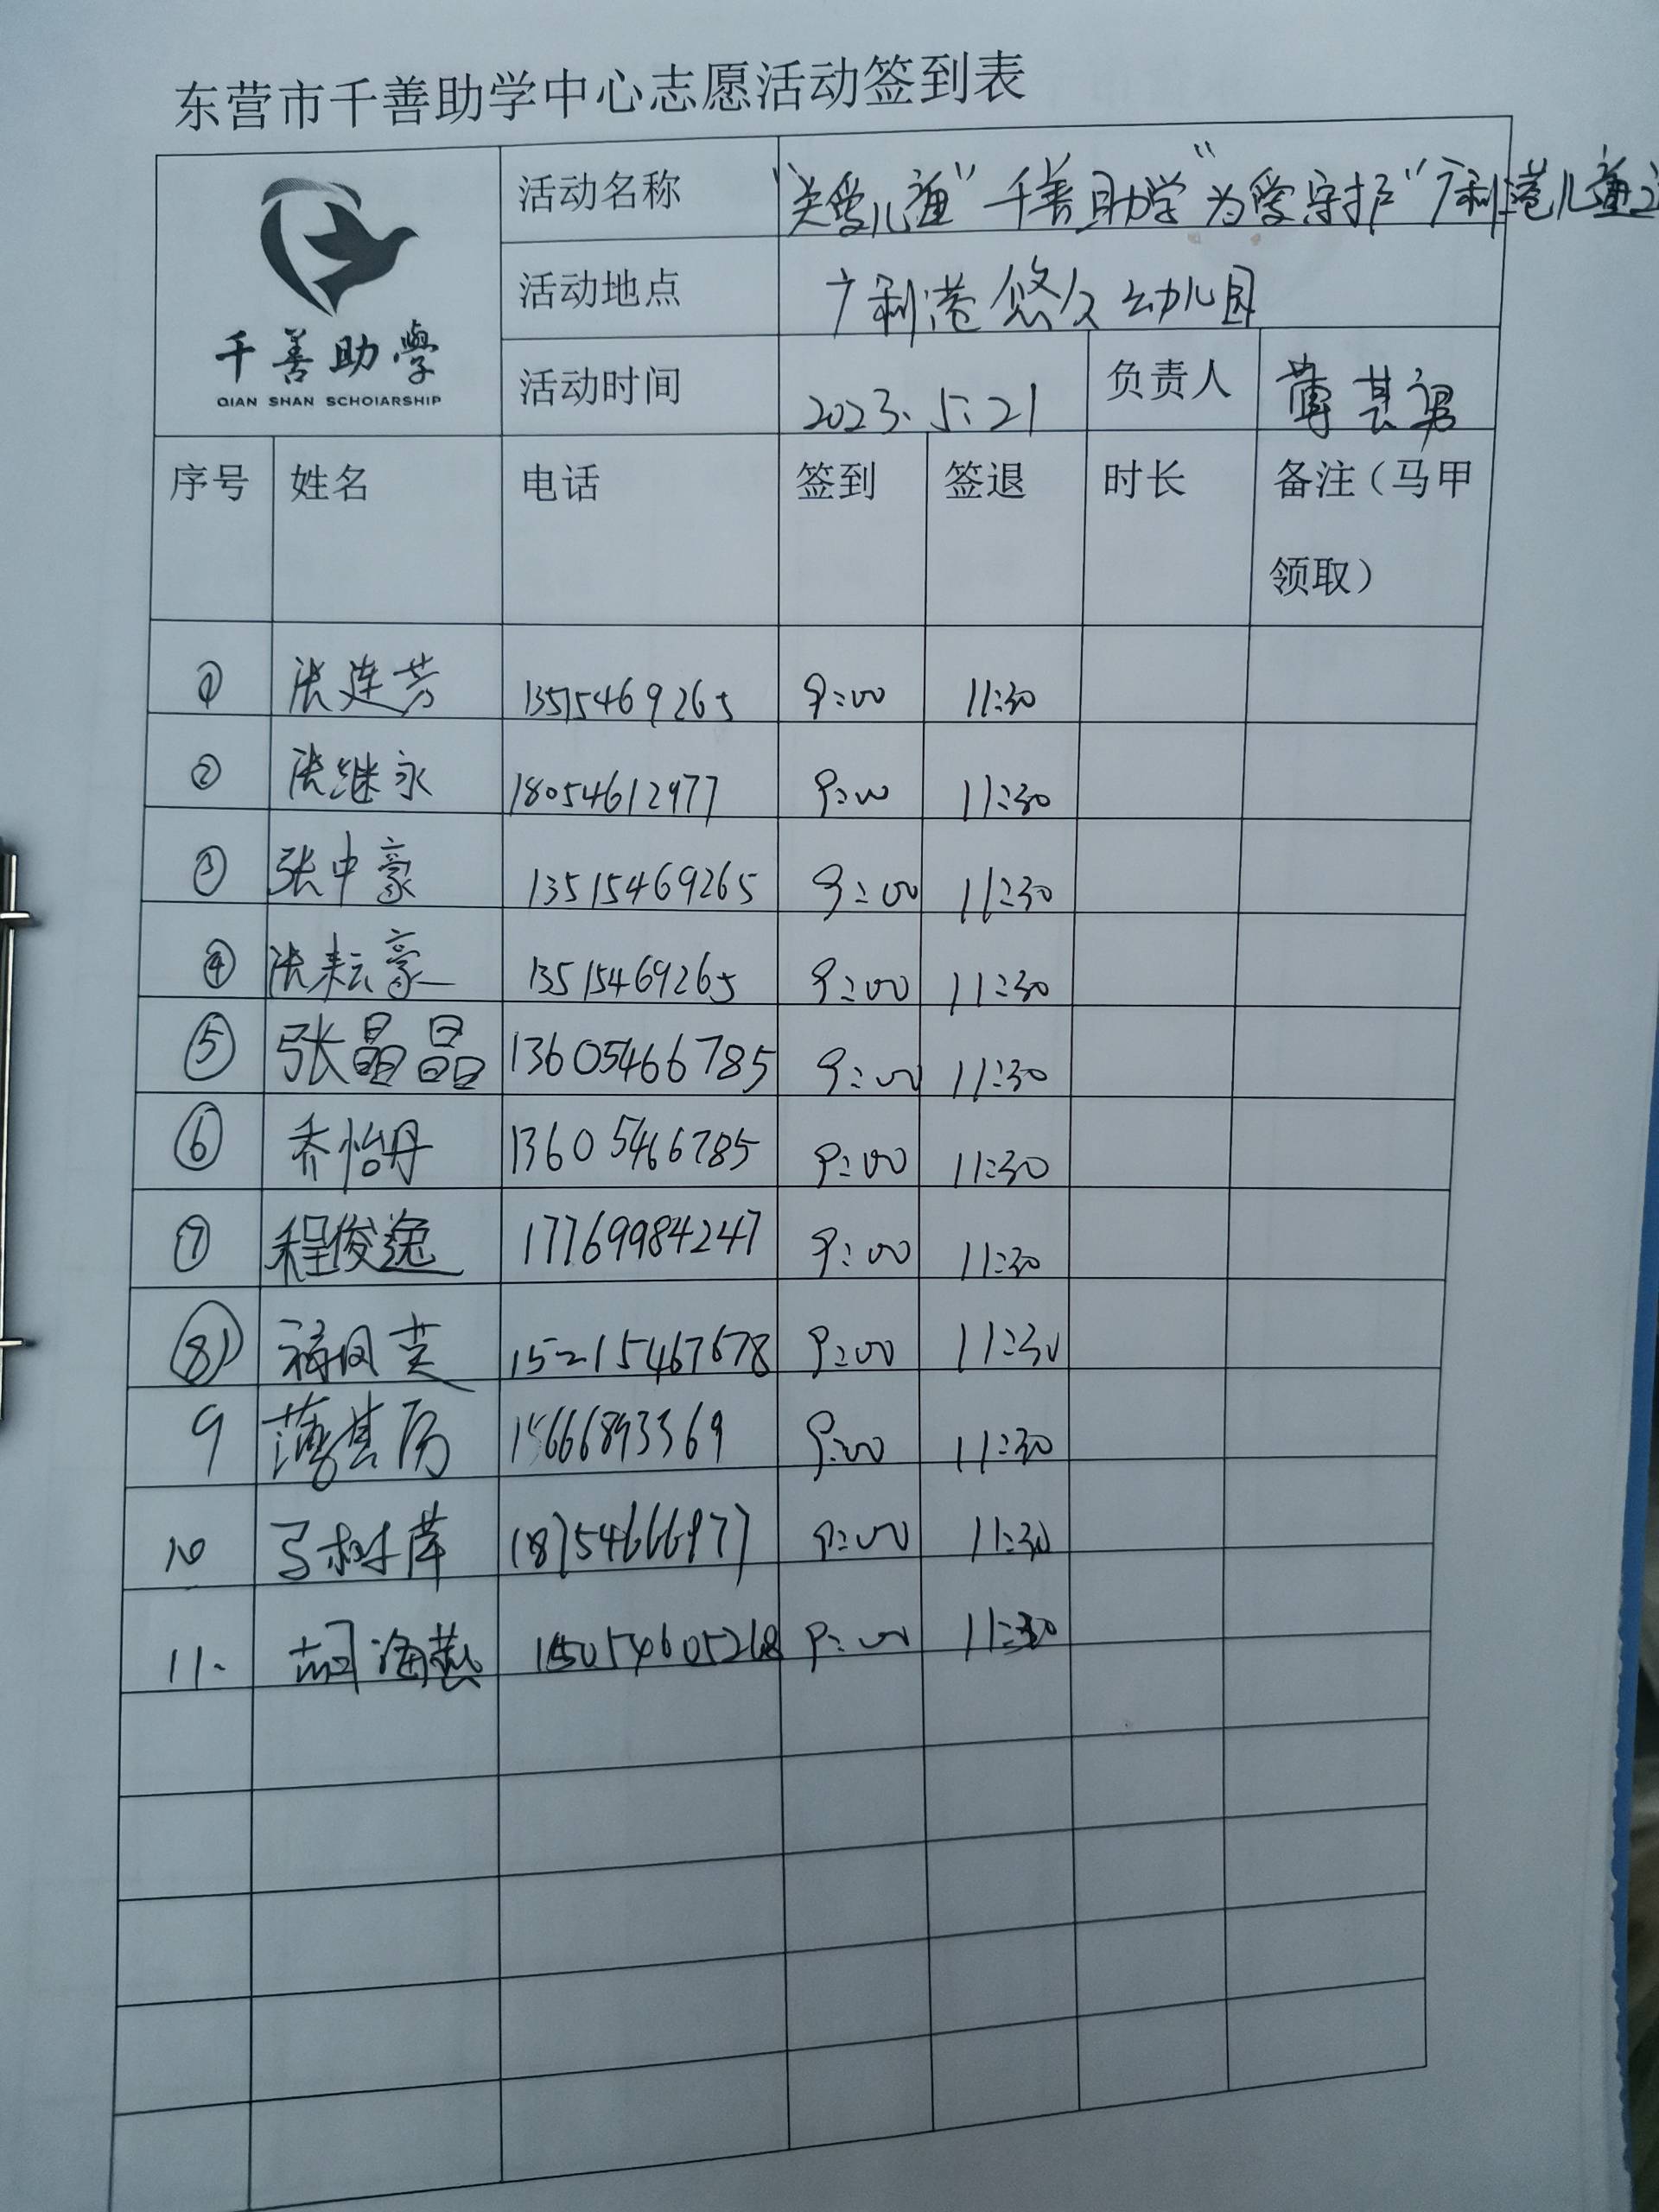 东营市千善助学中心志愿活动签到表
千善助學
QIAN SHAN SCHOlARSHIP
活动名称 "关爱儿童"千善助学"为爱守护"广利港儿童之
活动地点 广利港悠久幼儿园
活动时间 2023.5.21 负责人 薄其男
序号 姓名 电话 签到 签退 时长 备注（马甲
领取）
① 张连芳 13515469265 9:00 11:30
② 张继永 18054612977 9:00 11:30
③ 张中豪 13515469265 9:00 11:30
④ 张耘豪 13515469265 9:00 11:30
⑤ 张晶晶 13605466785 9:00 11:30
⑥ 乔怡丹 13605466785 9:00 11:30
⑦ 程俊逸 17769984247 9:00 11:30
⑧ 15215467678 9:00 11:30
9 薄其历 15666893369 9:00 11:30
10 马树萍 18754666977 9:00 11:30
11. 9:00 11:30